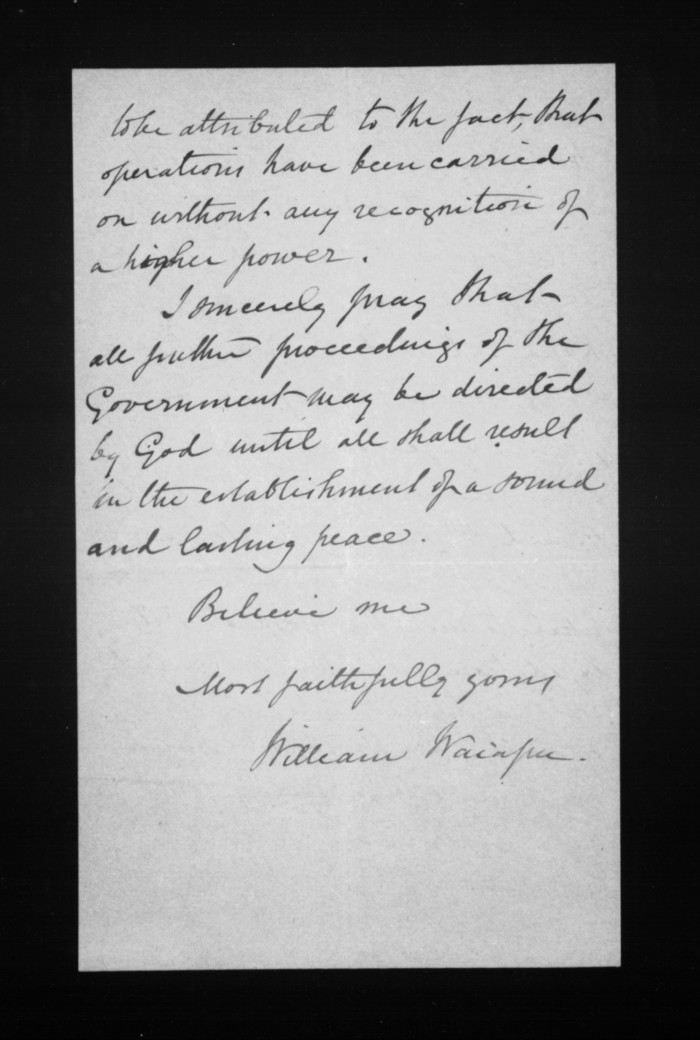 to be attributed to the fact, that
operations have been carried
on without any recognition of
a higher power.
I sincerely pray that
all further proceedings of the
Government may be directed
by God until all shall result
in the establishment of a sound
and lasting peace.
Believe me
Most faithfully yours
William Waiapu.